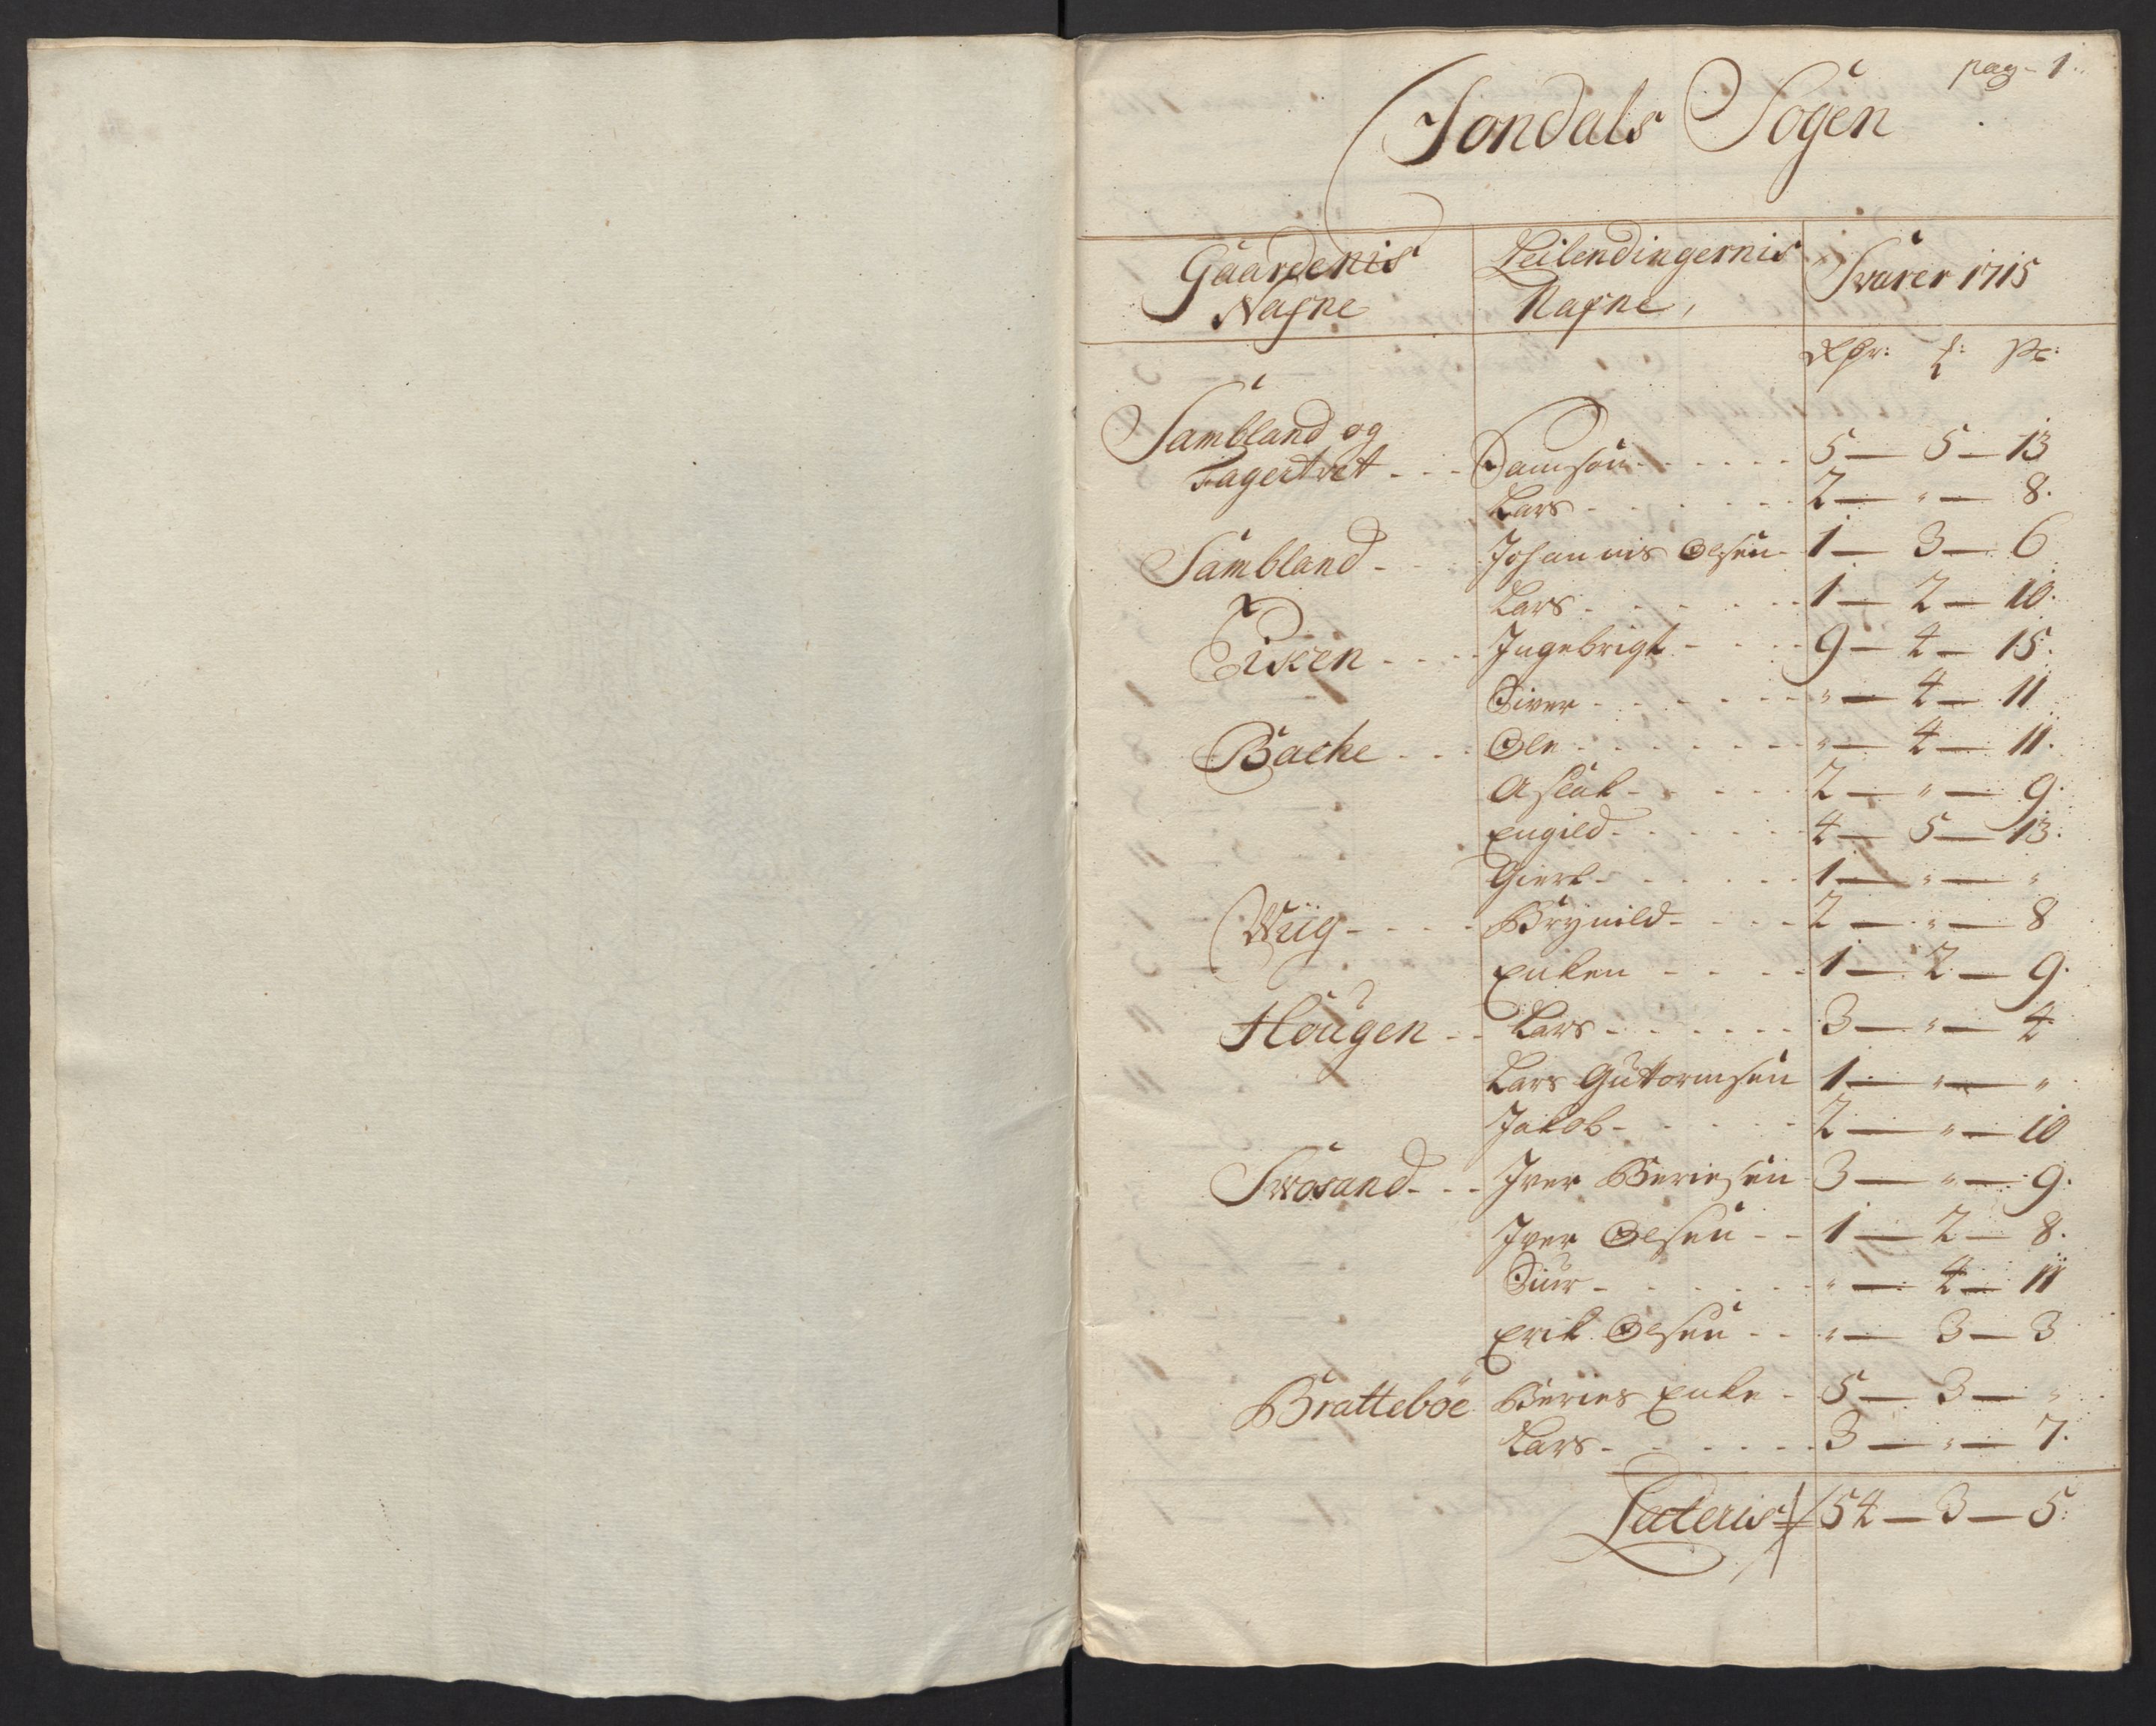 pag - 1.
Jondals Sogen
Gaardenis Nafne
Leilendingernis Nafne,
Svarer 1715
Sambland og
Fagertvet - - - Samson - - - - - - 5 — 5 — 13
Lars - - - - - - 2 — " — 8.
Sambland - - - Johannis Olsen - 1 — 3 — 6
Lars - - - - - - 1 — 2 — 10.
Eiken - - - - Ingebrigt - - - - 9 — 4 — 15.
Siver - - - - - - " — 4 — 11
Bache - - - Ole - - - - - - - " — 4 — 11.
Aslak - - - - - 2 — " — 9.
Engild - - - - - - 4 — 5 — 13.
Giert - - - - - - 1 — " — "
Wiig - - - - Brynild - - - - 2 — " — 8
Enken - - - - 1 — 2 — 9.
Hougen - - Lars - - - - - - 3 — " — 4
Lars Guttormsen 1 — " — "
Jakob - - - - - 2 — " — 10
Svosand - - - Iver Beriesen 3 — " — 9.
Iver Olsen - - 1 — 2 — 8.
Siur - - - - - - " — 4 — 11
Erik Olsen - - " — 3 — 3
Bratteböe Beries Enke - 5 — 3 — "
Lars - - - - - - 3 — " — 7.
Lateris 54 — 3 — 5: